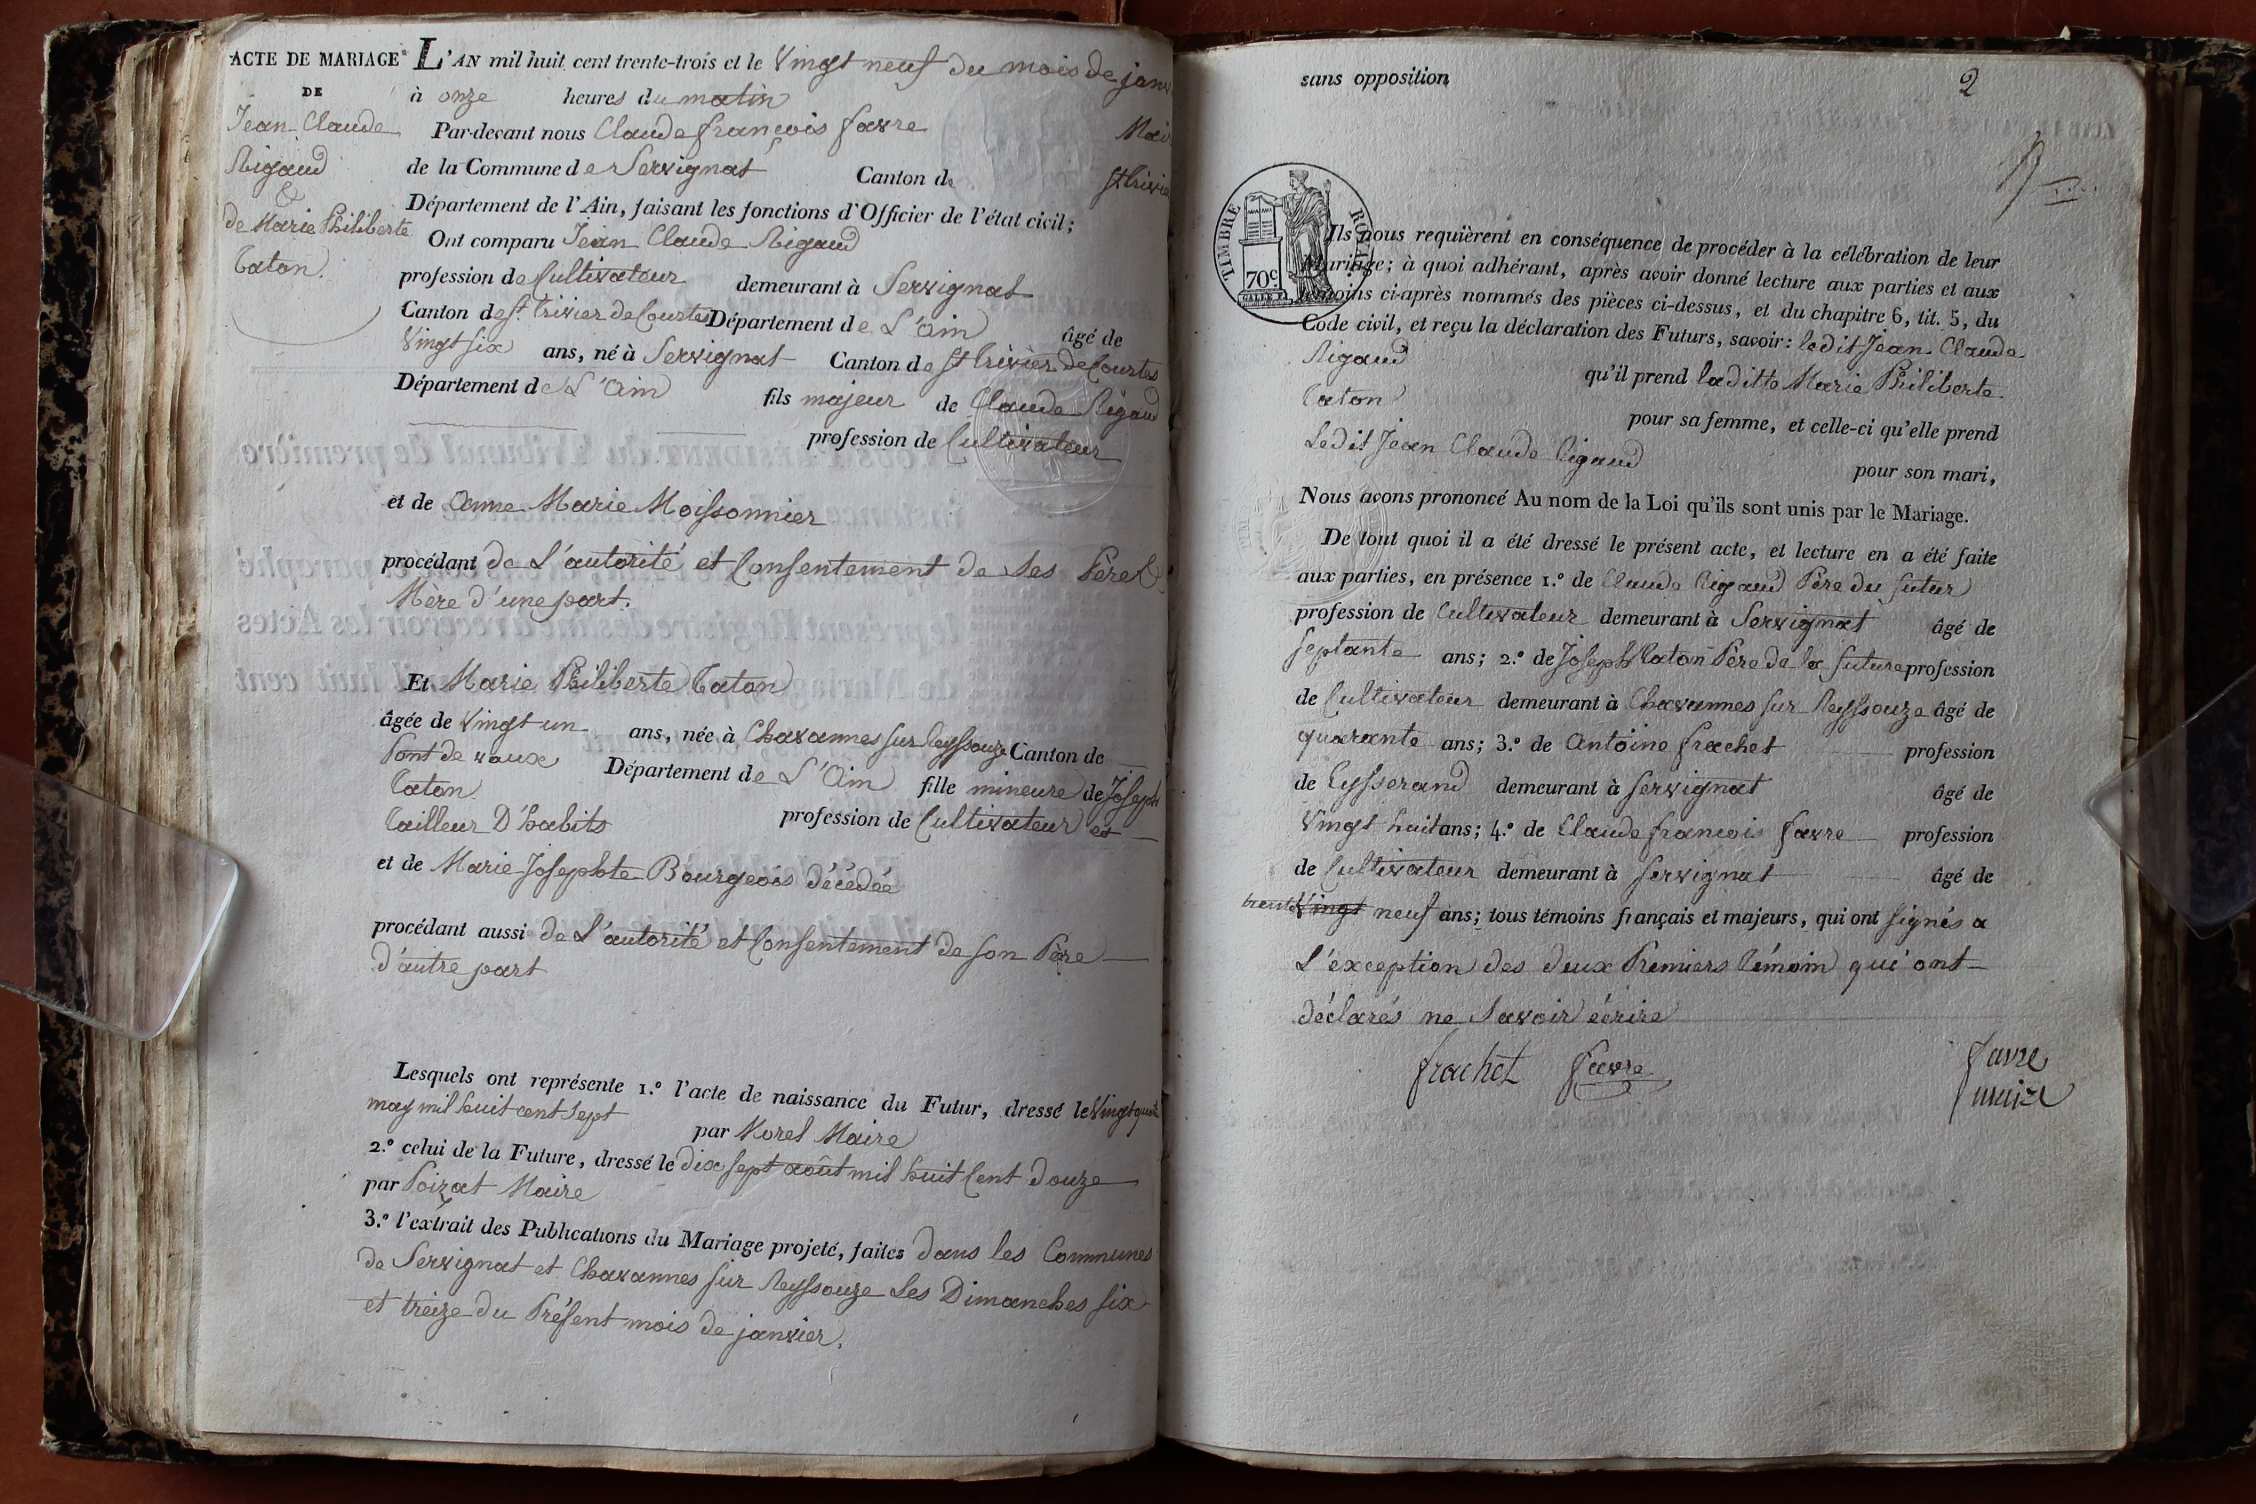 ACTE DE MARIAGE
DE
Jean Claude
Rigaud
&
de Marie Philiberte
Caton.
L'AN mil huit cent trente-trois et le Vingt neuf du mois de janv
à onze heures du matin
Par-devant nous Claude françois favre Mair
de la Commune de Servignat Canton de St trivie
Département de l'Ain, faisant les fonctions d'Officier de l'état civil;
Ont comparu Jean Claude Rigaud
profession de Cultivateur demeurant à Servignat
Canton de St trivier de Courtes Département de L'ain âgé de
Vingt six ans, né à Servignat Canton de St trivier de Courtes
Département de L'ain fils majeur de Claude Rigaud
profession de Cultivateur
et de anne Marie Moissonnier
procédant de L'autorité et Consentement de ses Père &
Mere d'une part.
Et Marie Philiberte Caton
âgée de Vingt un ans, née à Chavannes sur Reyssouze Canton de
Pont de vaux Département de L'ain fille mineure de Joseph
Caton
tailleur D'habits profession de Cultivateur et
et de Marie Josephte Bourgeois décédée
procédant aussi de L'autorité et Consentement de son Père
d'autre part
Lesquels ont représente 1.º l'acte de naissance du Futur, dressé le Vingt quatre
may mil huit cent sept par Morel Maire
2.º celui de la Future, dressé le dix sept août mil huit Cent douze
par Poizat Maire
3.º l'extrait des Publications du Mariage projeté, faites dans les Communes
de Servignat et Chavannes sur Reyssouze Les Dimanches six
et treize du Présent mois de janvier.
sans opposition
2
TIMBRE ROYAL
70c.
Ils nous requièrent en conséquence de procéder à la célébration de leur
Mariage; à quoi adhérant, après avoir donné lecture aux parties et aux
témoins ci-après nommés des pièces ci-dessus, et du chapitre 6, tit. 5, du
Code civil, et reçu la déclaration des Futurs, savoir: ledit Jean Claude
Rigaud qu'il prend laditte Marie Philiberte
Caton pour sa femme, et celle-ci qu'elle prend
Ledit Jean Claude Rigaud pour son mari,
Nous avons prononcé Au nom de la Loi qu'ils sont unis par le Mariage.
De tout quoi il a été dressé le présent acte, et lecture en a été faite
aux parties, en présence 1.º de Claude Rigaud Père du futur
profession de Cultivateur demeurant à Servignat âgé de
septante ans; 2.º de Joseph Caton Père de la future profession
de Cultivateur demeurant à Chavannes sur Reyssouze âgé de
quarante ans; 3.º de antoine frachet profession
de tysserand demeurant à servignat âgé de
Vingt huit ans; 4.º de Claude françois favre profession
de Cultivateur demeurant à servignat âgé de
trente Vingt neuf ans; tous témoins français et majeurs, qui ont signés a
L'exception des deux Premiers témoin qui ont
déclarés ne Savoir écrire
frachet favre favre
maire